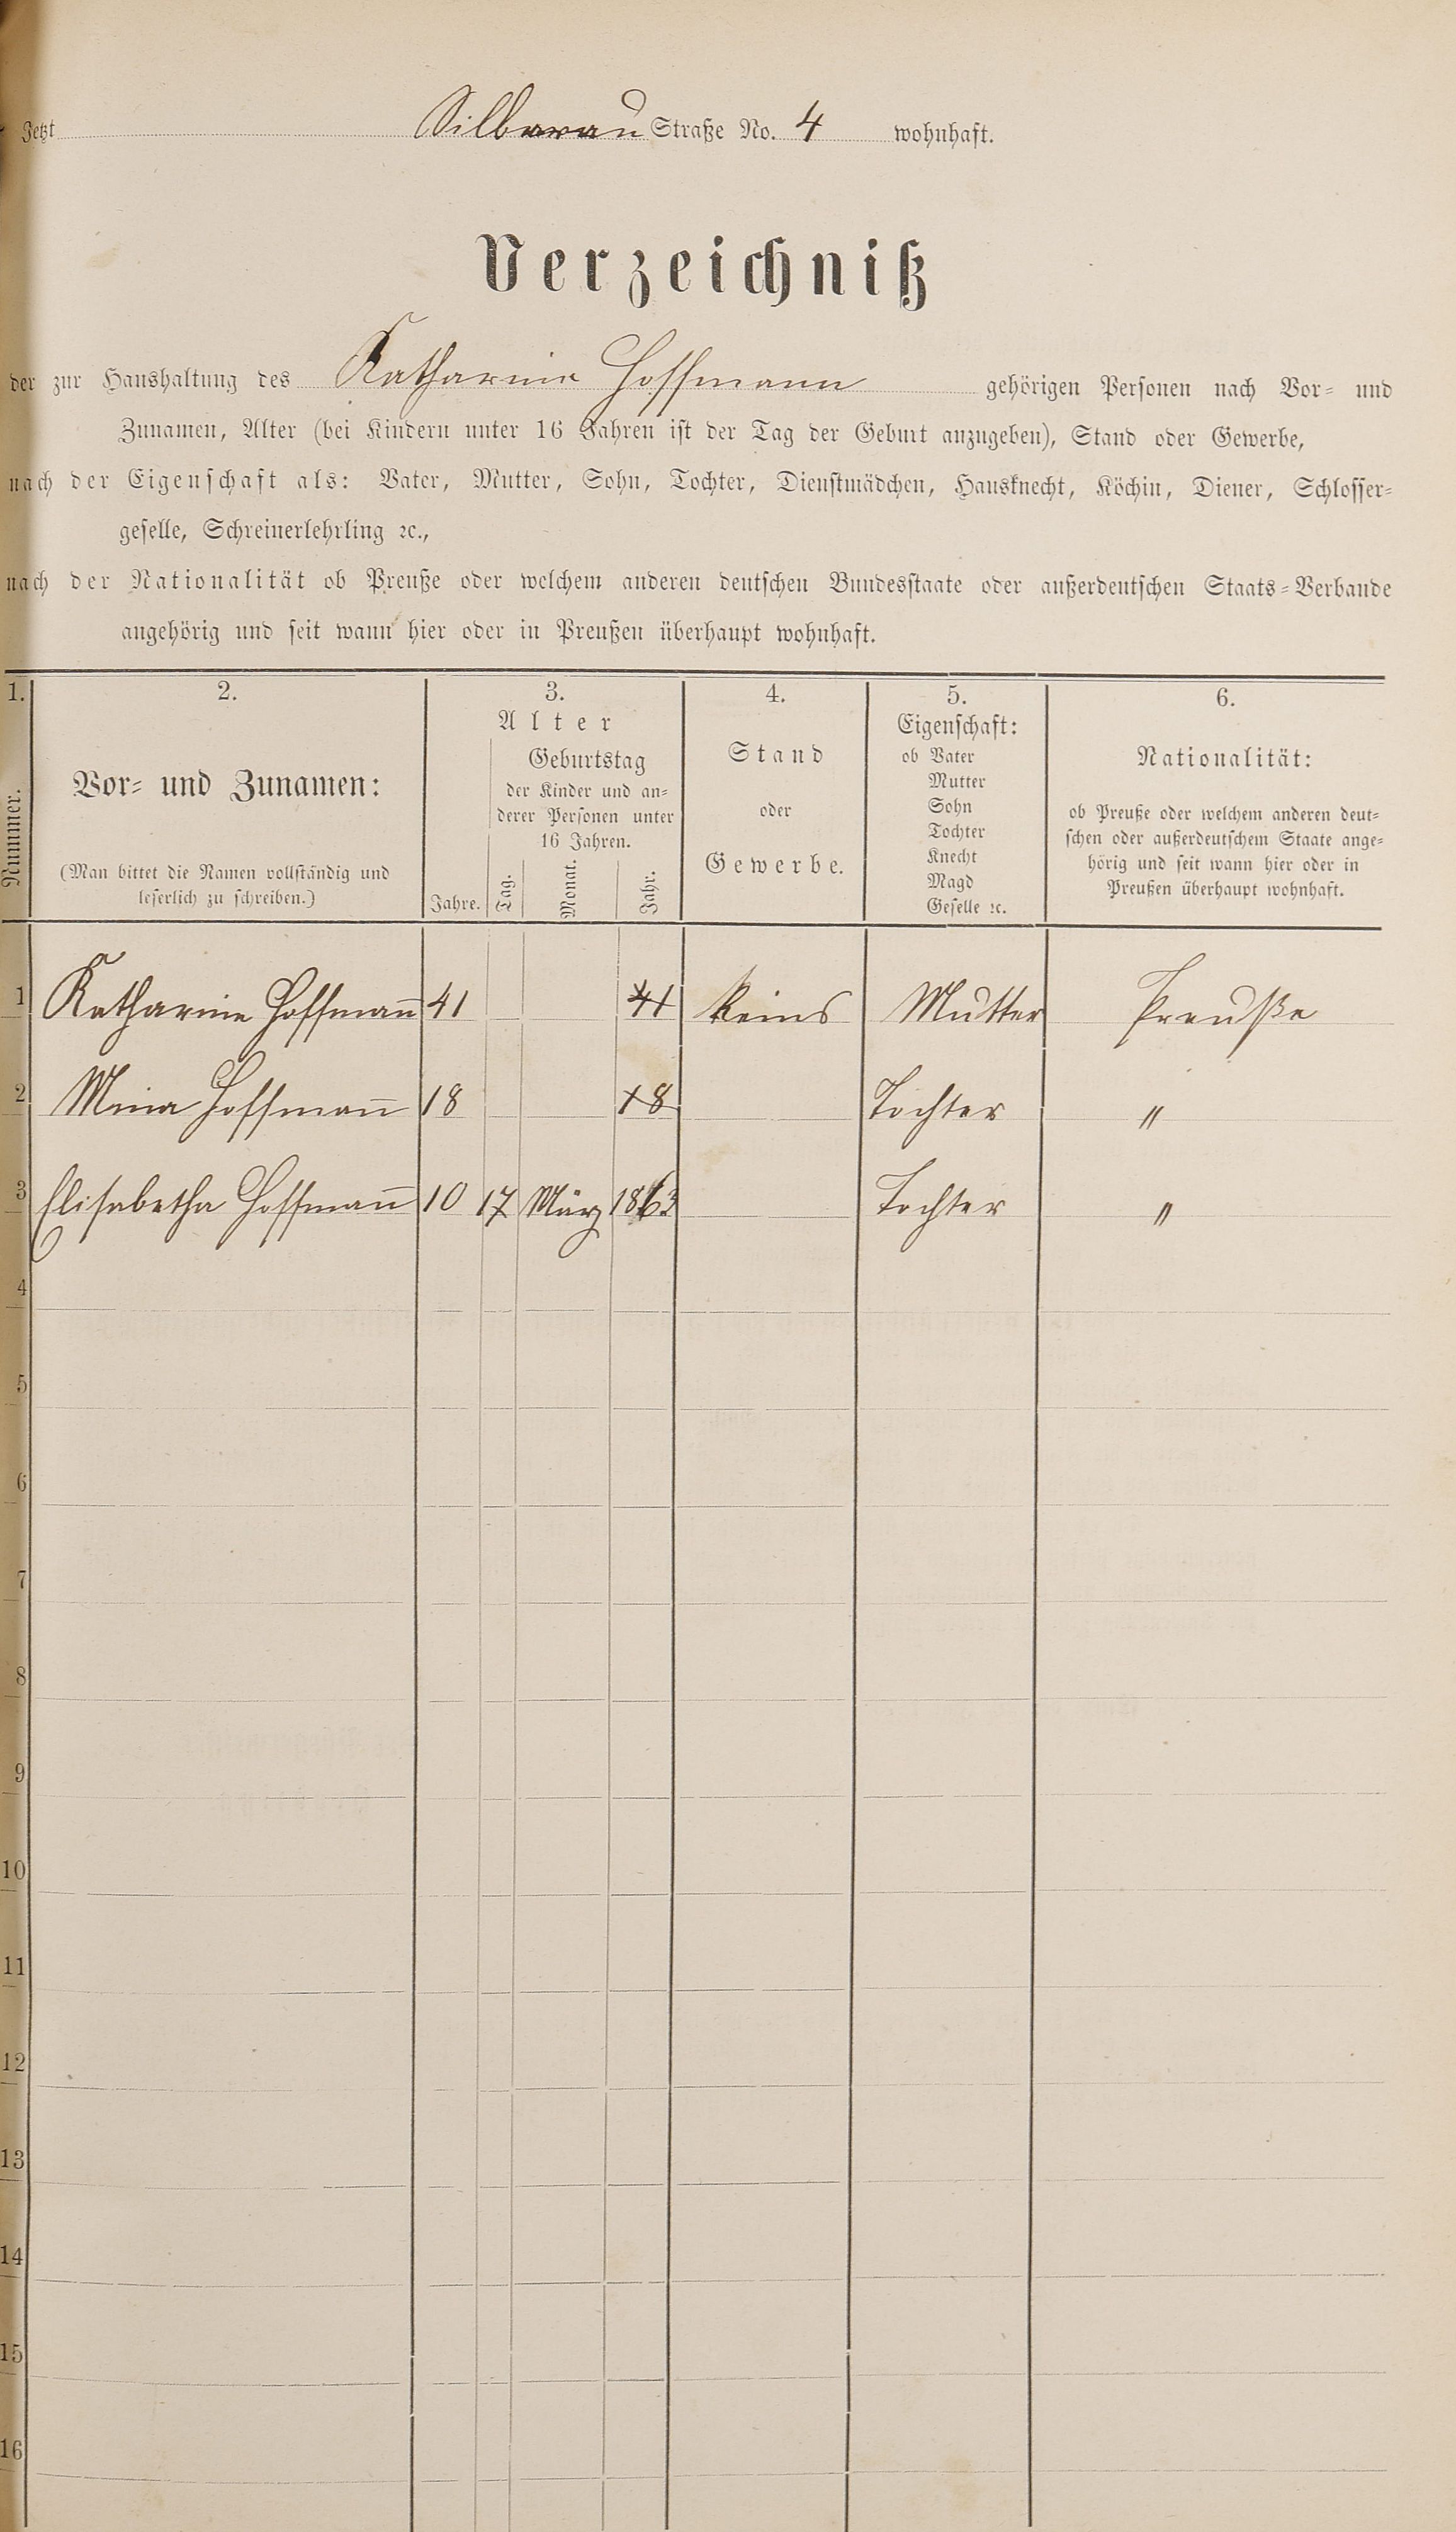 Jetzt Silberau Straße No. 4 wohnhaft.
Verzeichniß
der zur Haushaltung des Katharina Hoffmann gehörigen Personen nach Vor- und
Zunamen, Alter (bei Kindern unter 16 Jahren ist der Tag der Geburt anzugeben), Stand oder Gewerbe,
nach der Eigenschaft als: Vater, Mutter, Sohn, Tochter, Dienstmädchen, Hausknecht, Köchin, Diener, Schlosser-
geselle, Schreinerlehrling ꝛc.,
nach der Nationalität ob Preuße oder welchem anderen deutschen Bundesstaate oder außerdeutschen Staats-Verbande
angehörig und seit wann hier oder in Preußen überhaupt wohnhaft.
1. 2. 3. 4. 5. 6.
Nummer.
Vor- und Zunamen:
(Man bittet die Namen vollständig und
leserlich zu schreiben.)
Alter
Geburtstag
der Kinder und an-
derer Personen unter
16 Jahren.
Jahre. Tag. Monat. Jahr.
Stand
oder
Gewerbe.
Eigenschaft:
ob Vater
Mutter
Sohn
Tochter
Knecht
Magd
Geselle ꝛc.
Nationalität:
ob Preuße oder welchem anderen deut-
schen oder außerdeutschem Staate ange-
hörig und seit wann hier oder in
Preußen überhaupt wohnhaft.
1 Katharina Hoffmann 41 41 Keins Mutter Preuße
2 Mina Hoffmann 18 18 Tochter "
3 Elisabetha Hoffmann 10 17 März 1863 Tochter "
4
5
6
7
8
9
10
11
12
13
14
15
16